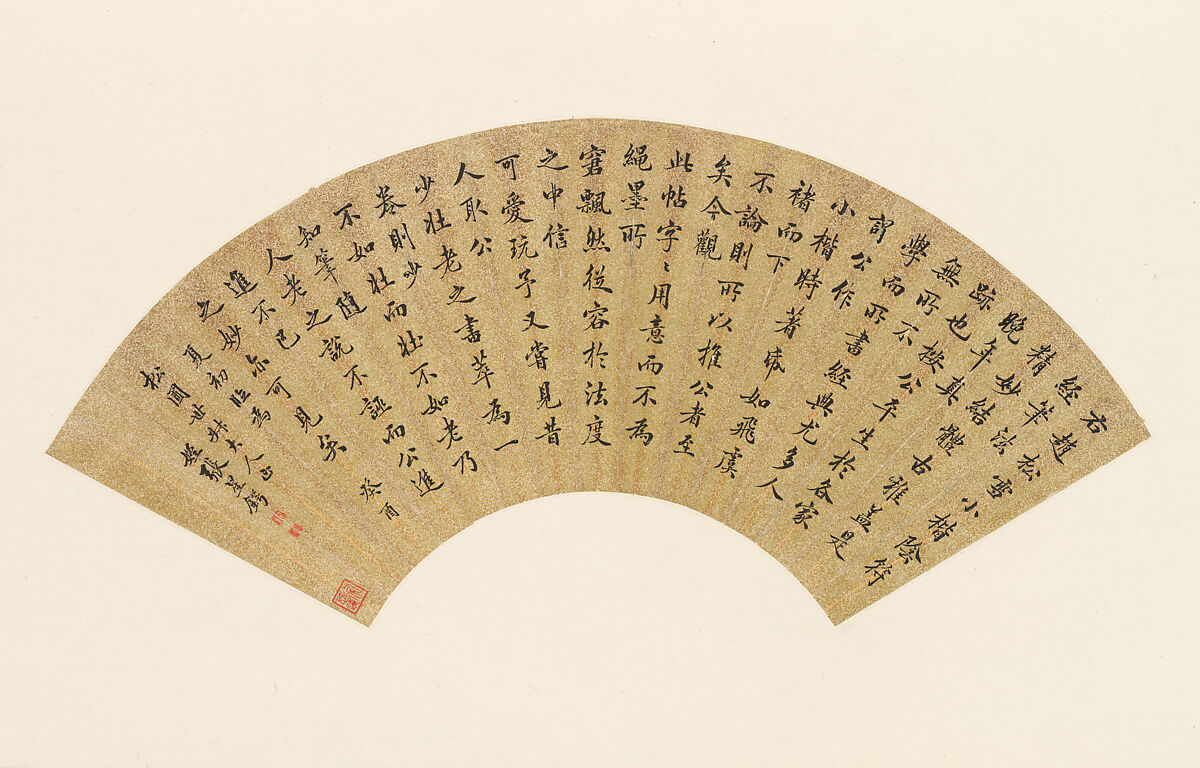 右趙松雪小楷陰符
經筆法
精妙結體古雅蓋是
晚年真
跡也按公平生於各家
無所不
學而所書經典尤多人
謂公作
小楷時著帋如飛虞
褚而下
不論則所以推公者至
矣今觀
此帖字〻用意而不為
繩墨所
窘飄然從容於法度
之中信
可愛玩予又嘗見昔
人取公
少壯老之書萃為一
卷則少
不如壯而壯不如老乃
知筆隨
人老之說不誣而公進
進不已
之妙亦可見矣癸酉
夏初臨為
松圃世叔大人正
姪張星鍔